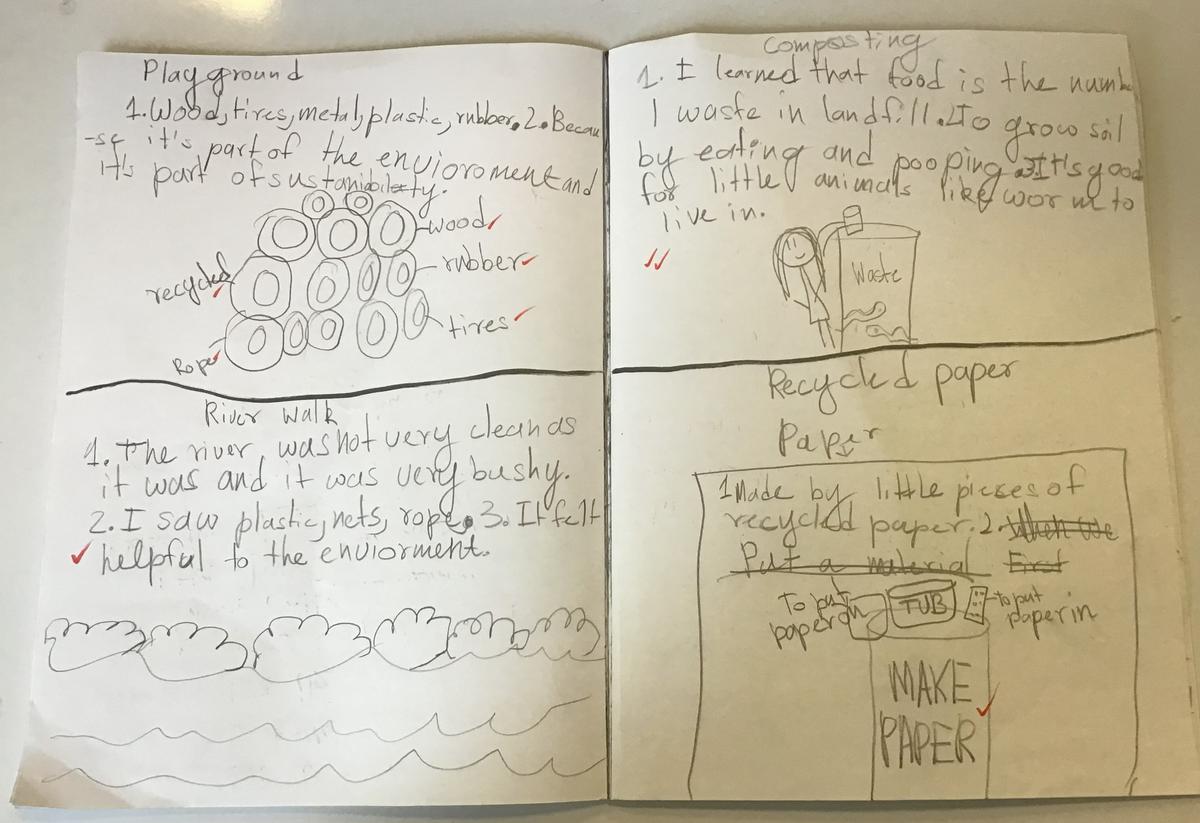 Playground
1. Wood, tires, metal, plastic, rubber. 2. Becau
-se it's part of the envioroment and
it's part of sustanibilety.
wood
rubber
recycled
tires
Rope
River walk
1. The river was not very clean as
it was and it was very bushy.
2. I saw plastic, nets, rope. 3. It felt
helpful to the enviorment.
Composting
1. I learned that food is the numbe
1 waste in landfill. To grow soil
by eating and pooping. It's good
for little animals like worm to
live in.
Waste
Recycled paper
Paper
1 Made by little pieses of
recycled paper. 2. When we
Put a material First
To put
paper on
TUB
To put
paper in
MAKE
PAPER